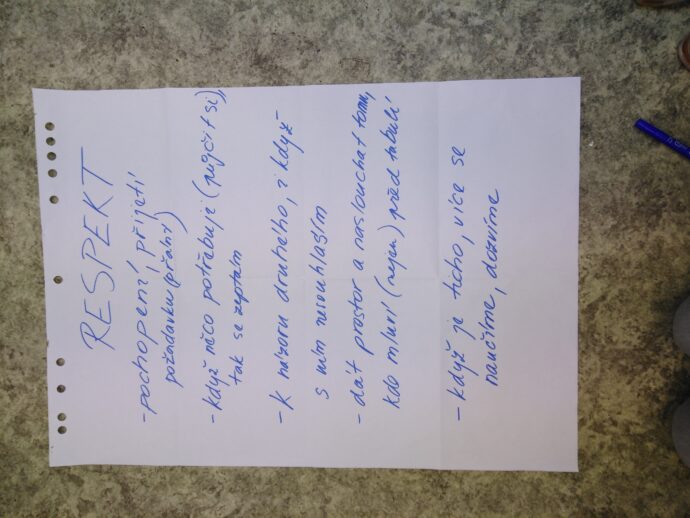 RESPEKT
- pochopení, přijetí
požadavku (přání)
- když něco potřebuji (půjčit si),
tak se zeptám
- K názoru druhého, i když
s ním nesouhlasím
- dát prostor a naslouchat tomu,
kdo mluví (nejen) před tabulí
- když je ticho, více se
naučíme, dozvíme